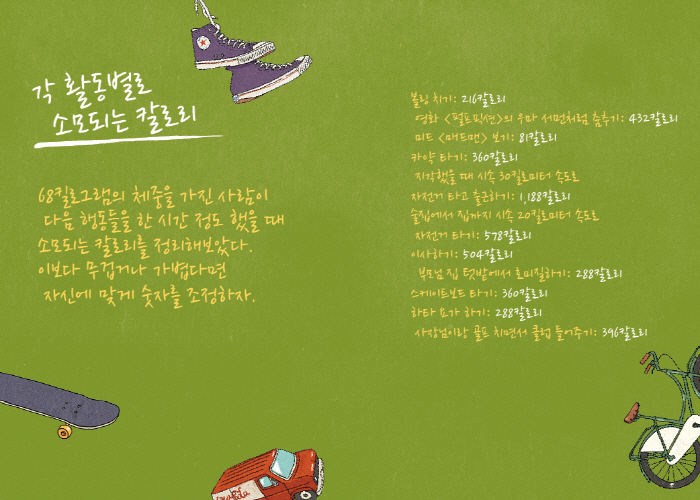 각 활동별로
소모되는 칼로리
68킬로그램의 체중을 가진 사람이
다음 행동들을 한 시간 정도 했을 때
소모되는 칼로리를 정리해보았다.
이보다 무겁거나 가볍다면
자신에 맞게 숫자를 조정하자.
볼링 치기: 216칼로리
영화 <펄프픽션>의 우마 서먼처럼 춤추기: 432칼로리
미드 <매드맨> 보기: 81칼로리
카약 타기: 360칼로리
지각했을 때 시속 30킬로미터 속도로
자전거 타고 출근하기: 1,188칼로리
술집에서 집까지 시속 20킬로미터 속도로
자전거 타기: 578칼로리
이사하기: 504칼로리
부모님 집 텃밭에서 호미질하기: 288칼로리
스케이트보드 타기: 360칼로리
하타 요가 하기: 288칼로리
사장님이랑 골프 치면서 클럽 들어주기: 396칼로리